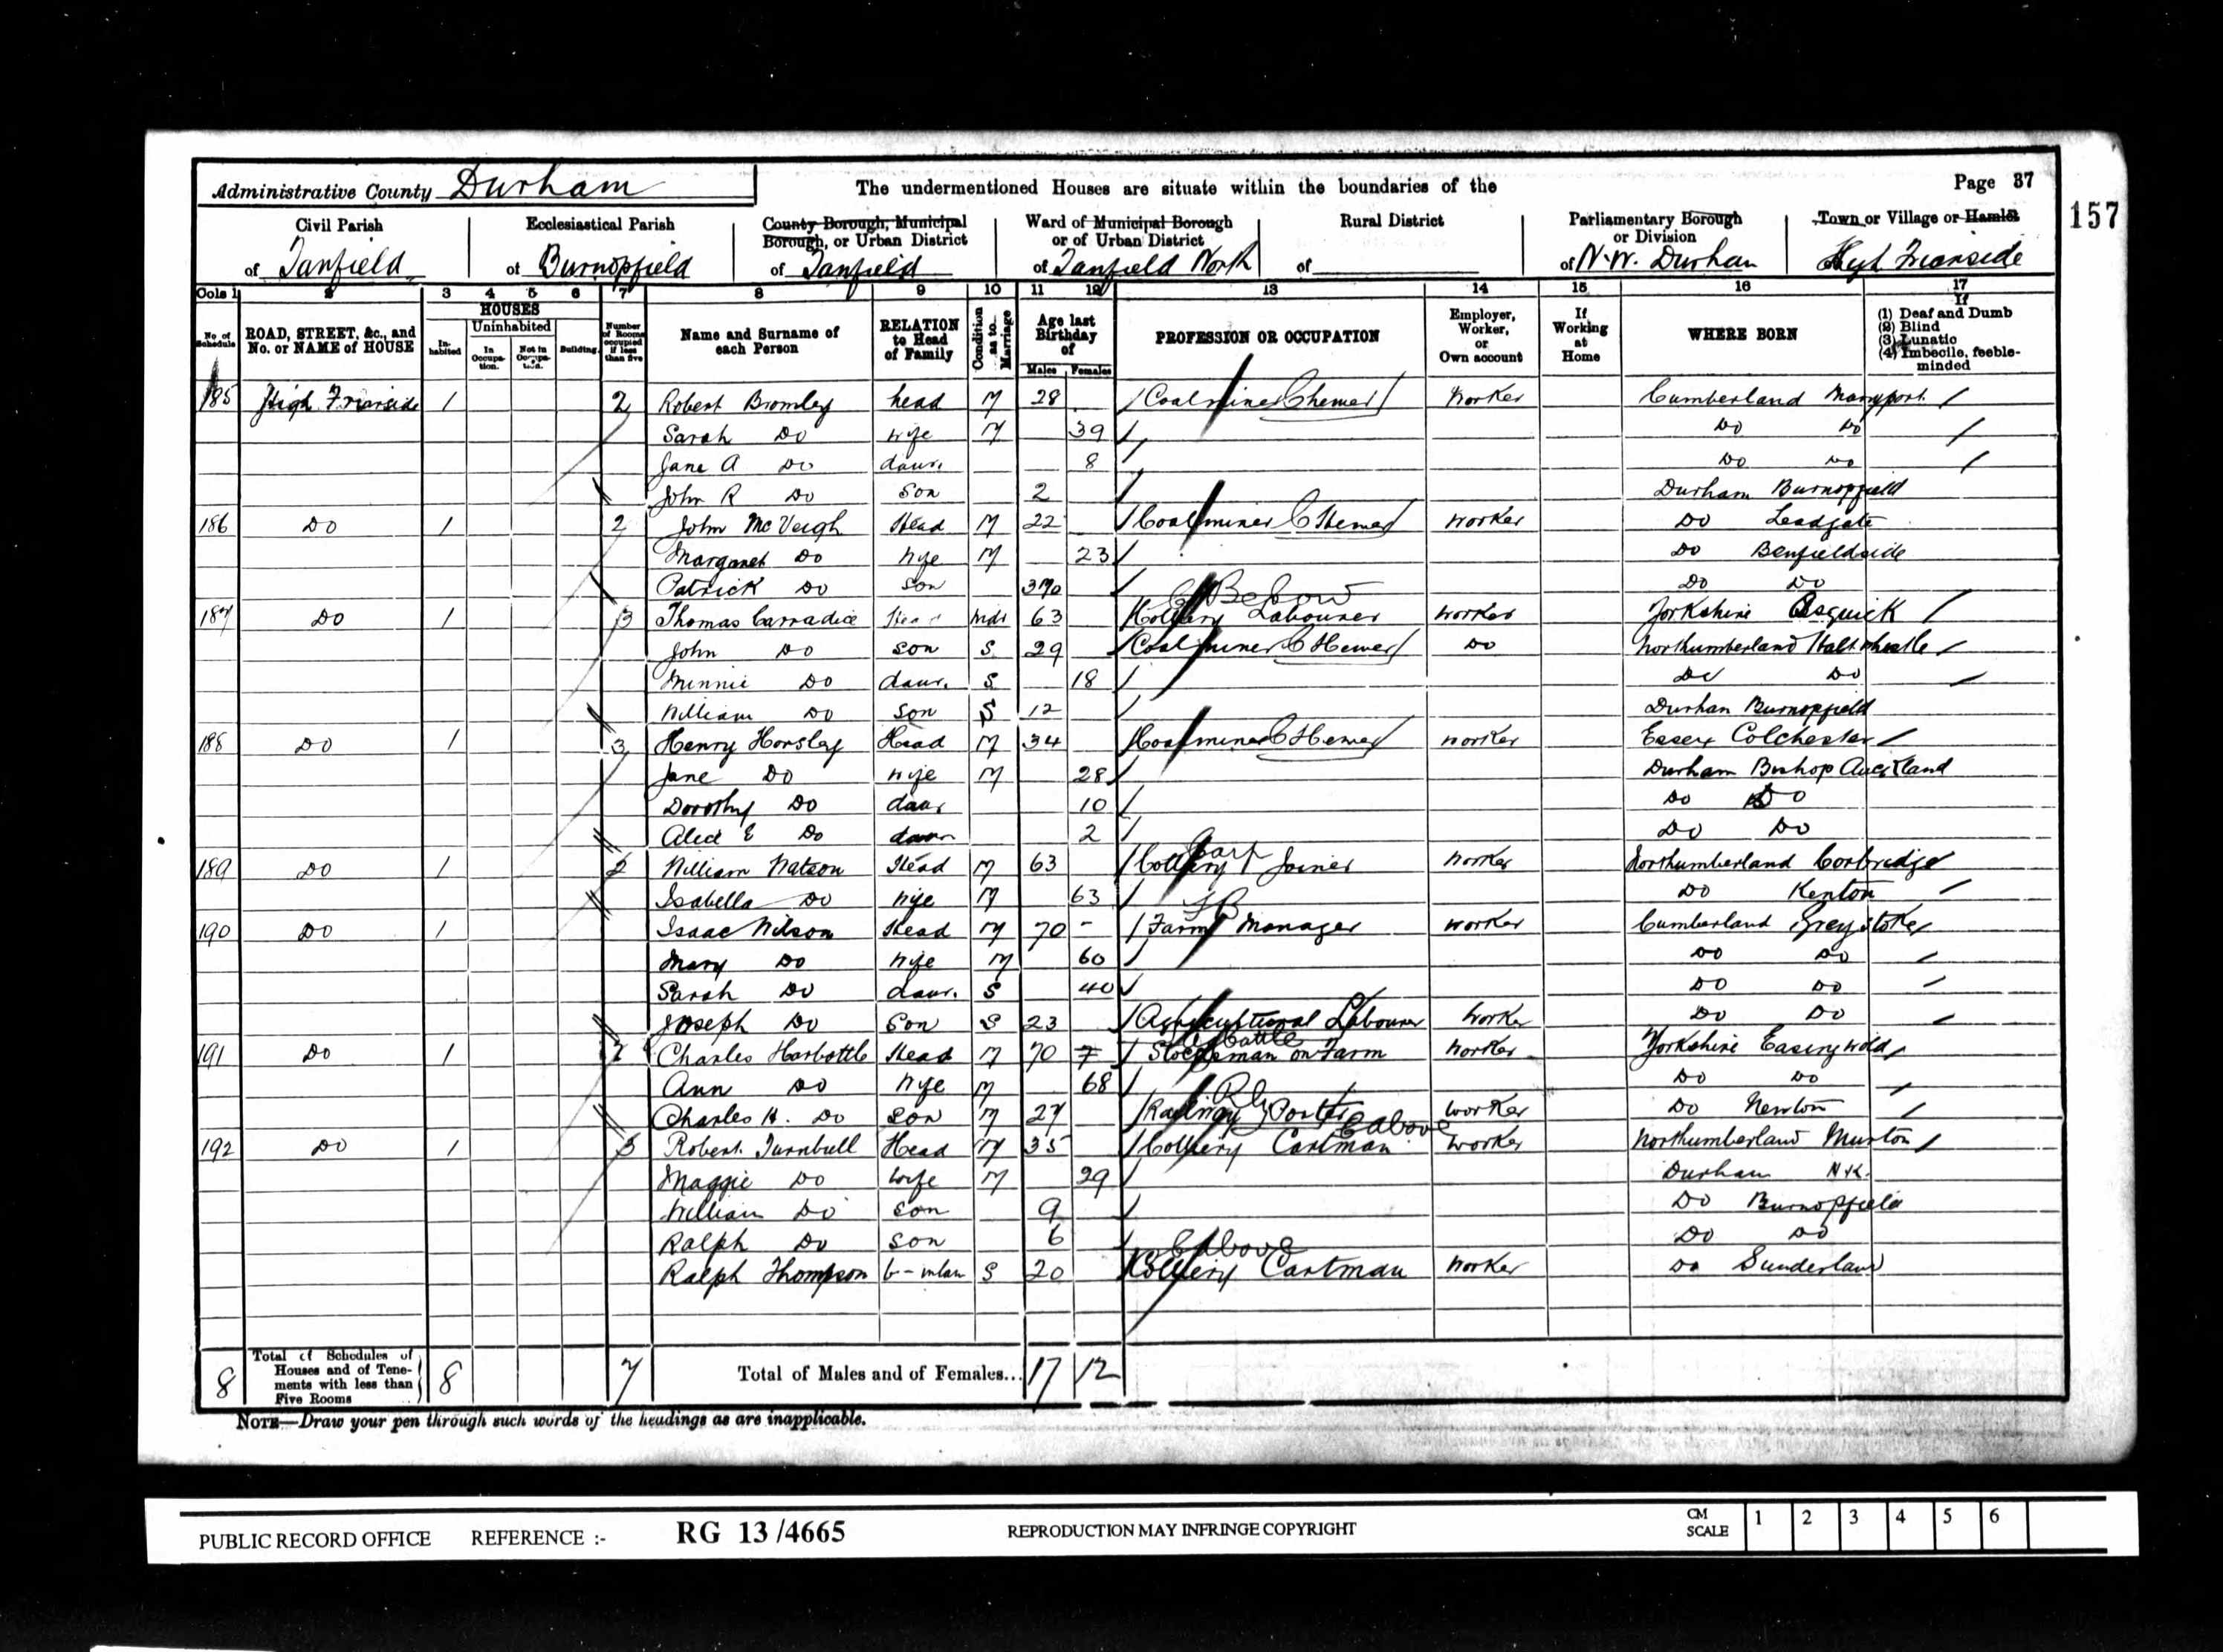 Administrative County Durham The undermentioned Houses are situate within the boundaries of the Page 37
157
Civil Parish of Tanfield
Ecclesiastical Parish of Burnopfield
County Borough, Municipal Borough, or Urban District of Tanfield
Ward of Municipal Borough or of Urban District of Tanfield North
Rural District of
Parliamentary Borough or Division of N.W. Durham
Town or Village or Hamlet High Friarside
Cols 1 2 3 4 5 6 7 8 9 10 11 12 13 14 15 16 17
No. of Schedule
ROAD, STREET, &c., and No. or NAME of HOUSE
HOUSES
Inhabited
Uninhabited
In Occupation.
Not in Occupation.
Building.
Number of Rooms occupied if less than five
Name and Surname of each Person
RELATION to Head of Family
Condition as to Marriage
Age last Birthday of
Males Females
PROFESSION OR OCCUPATION
Employer, Worker, or Own account
If Working at Home
WHERE BORN
If
(1) Deaf and Dumb
(2) Blind
(3) Lunatic
(4) Imbecile, feeble-minded
185 High Friarside 1 2 Robert Bromley head M 28 Coalminer Hewer Worker Cumberland Maryport
Sarah Do wife M 39 Do Do
Jane A Do daur. 8 Do Do
John R Do Son 2 Durham Burnopfield
186 Do 1 2 John McVeigh Head M 22 Coalminer Hewer Worker Do Leadgate
Margaret Do Wife M 23 Do Benfieldside
Patrick Do Son Do Do
C Below
187 Do 1 3 Thomas Carradice Head Wdr 63 Colliery Labourer Worker Yorkshire
John Do Son S 29 Coalminer Hewer Do Northumberland Haltwhistle
Minnie Do daur. S 18 Do Do
William Do Son S 12 Durham Burnopfield
188 Do 1 3 Henry Horsley Head M 34 Coalminer Hewer Worker Essex Colchester
Jane Do Wife M 28 Durham Bishop Auckland
Dorothy Do daur 10 Do Do
Alice E Do daur 2 Do Do
Carp
189 Do 1 2 William Watson Head M 63 Colliery Joiner Worker Northumberland Corbridge
Isabella Do Wife M 63 Do Kenton
190 Do 1 Isaac Wilson Head M 70 - Farm Manager Worker Cumberland Greystoke
Mary Do Wife M 60 Do Do
Sarah Do daur. S 40 Do Do
Joseph Do Son S 23 Agricultural Labourer Worker Do Do
Cattle
191 Do 1 2 Charles Harbottle Head M 70 Stockman on Farm Worker Yorkshire Easingwold
Ann Do Wife M 68 Do Do
Charles H. Do Son M 27 Railway Porter Worker Do Newton
C above
192 Do 1 3 Robert Turnbull Head M 35 Colliery Cartman Worker Northumberland Murton
Maggie Do Wife M 29 Durham N.K.
William Do Son 9 Do Burnopfield
Ralph Do Son 6 Do Do
C above
Ralph Thompson S 20 Colliery Cartman Worker Do Sunderland
8 Total of Schedules of Houses and of Tenements with less than Five Rooms 8 7 Total of Males and of Females... 17 12
NOTE—Draw your pen through such words of the headings as are inapplicable.
PUBLIC RECORD OFFICE REFERENCE :- RG 13 /4665 REPRODUCTION MAY INFRINGE COPYRIGHT CM SCALE 1 2 3 4 5 6